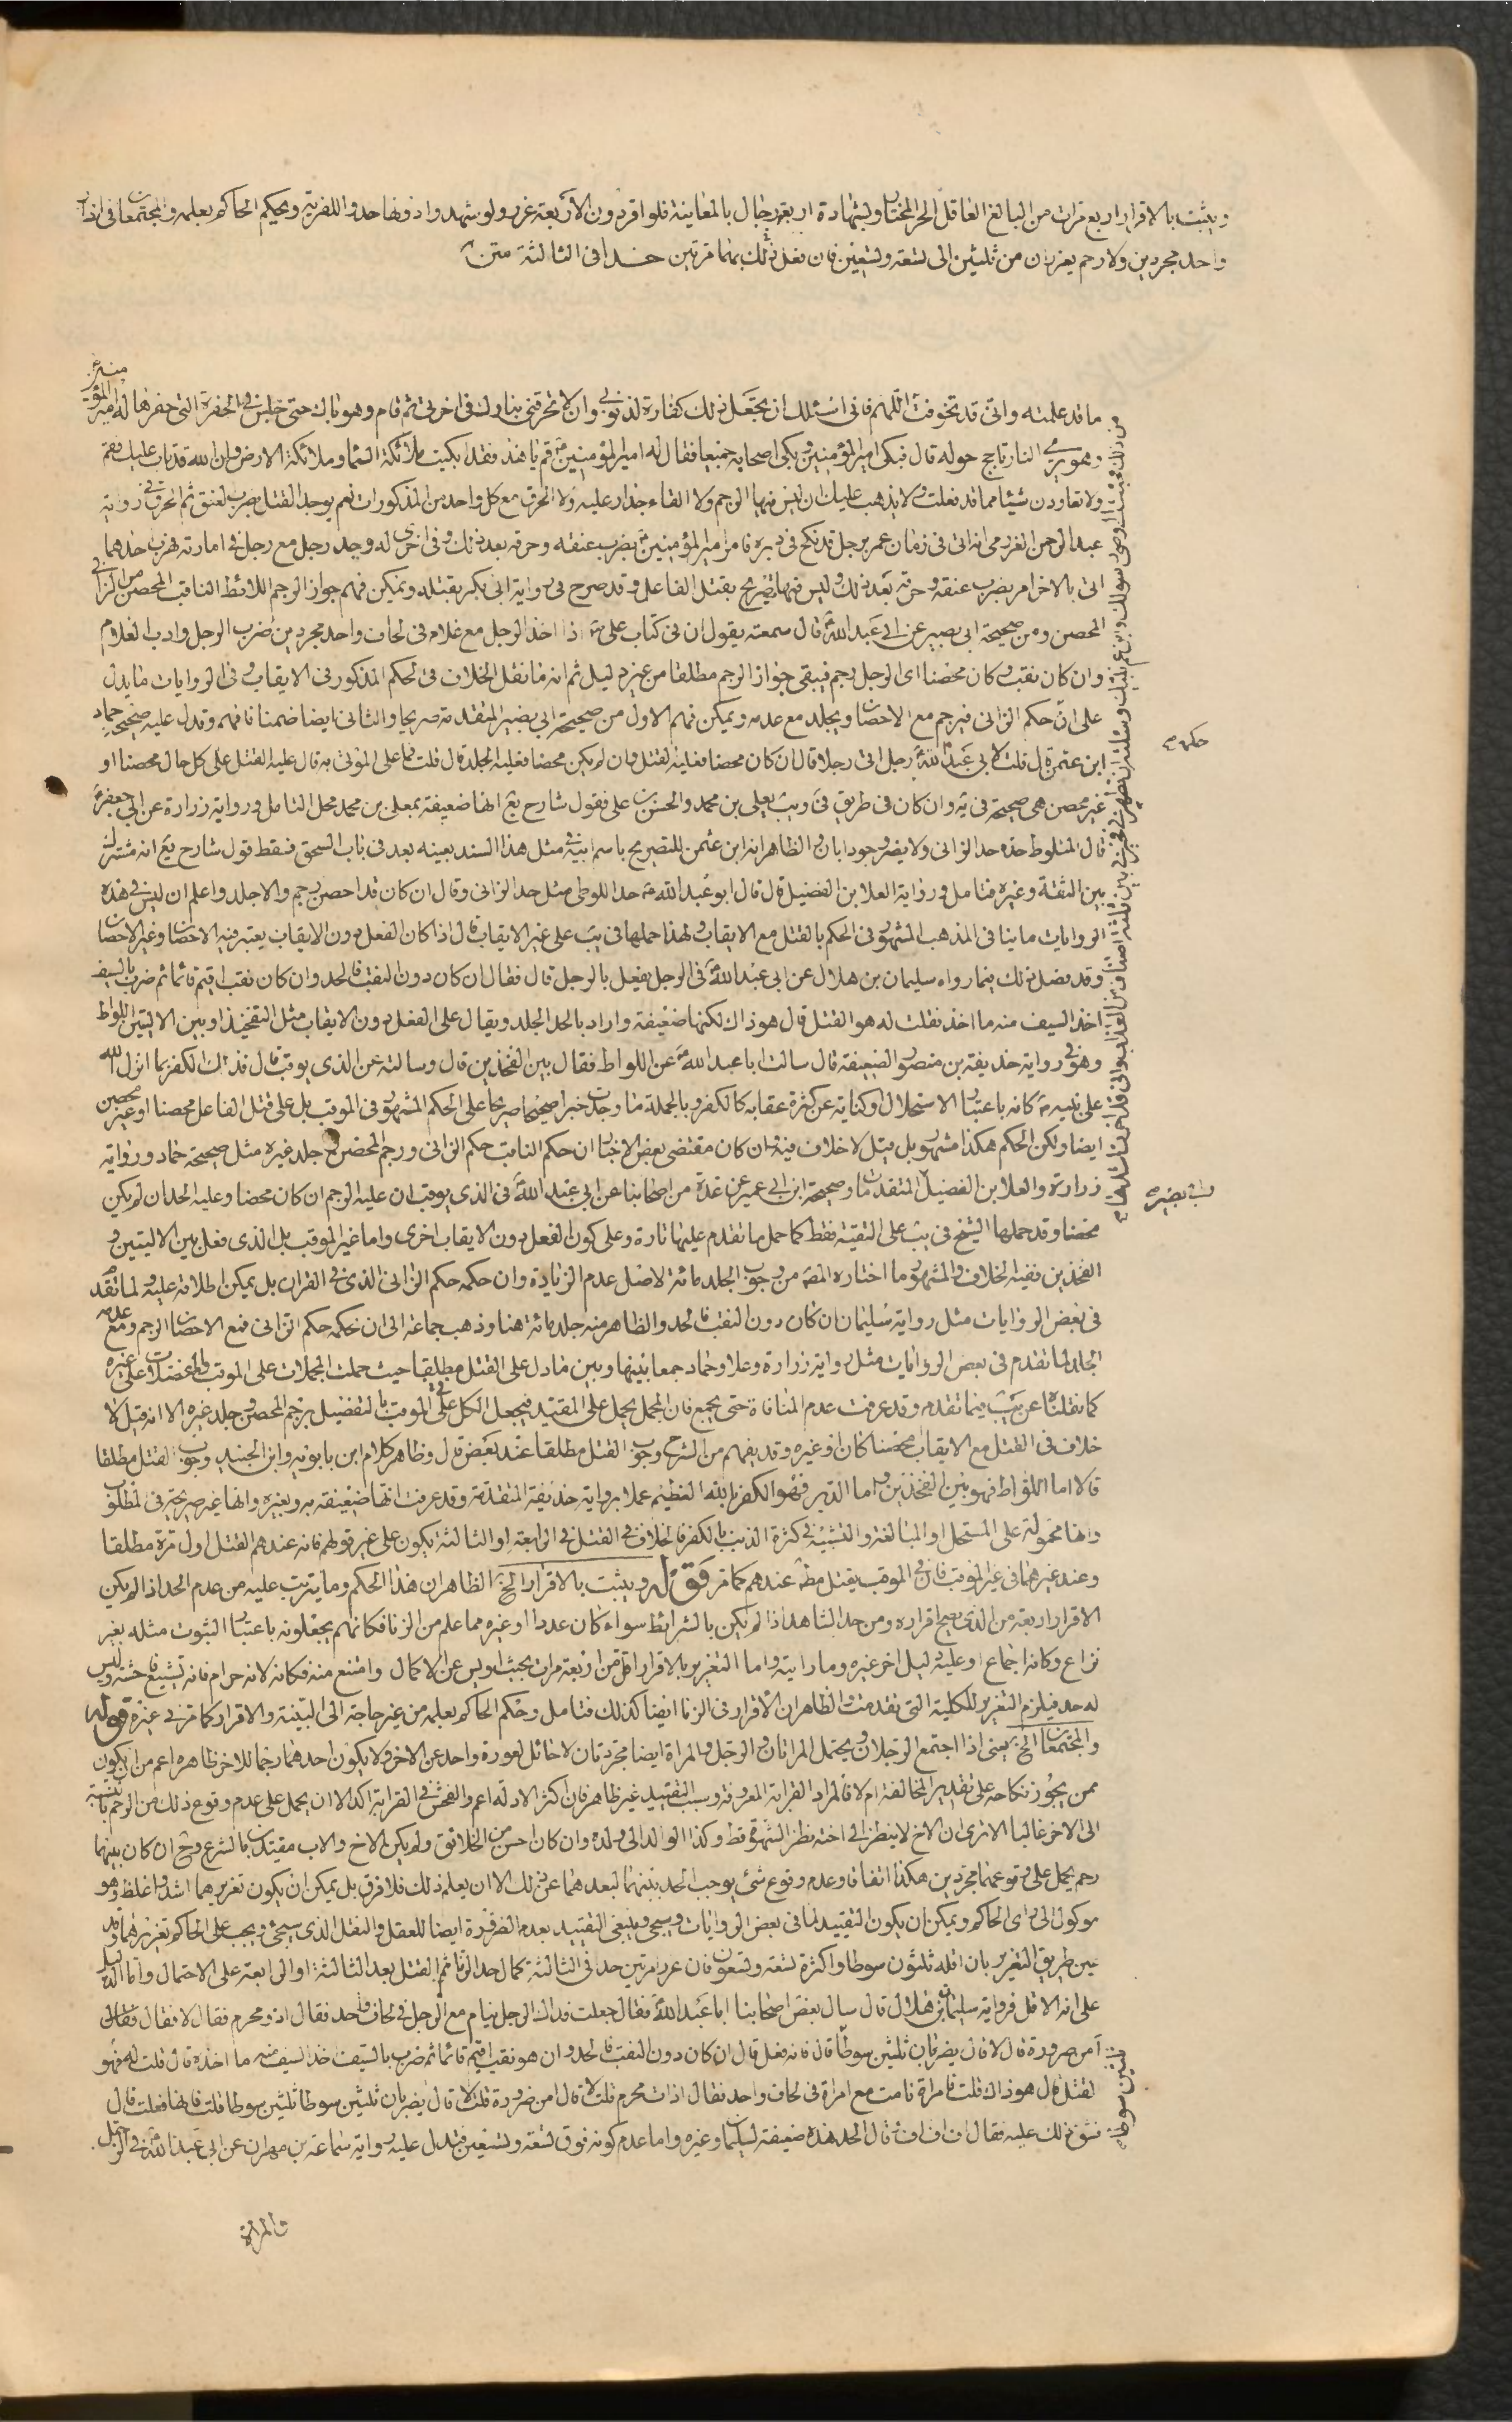 ويثبت بالاقرار اربع مرات من البالغ العاقل الحر المختار وبشهادة اربعة رجال بالمعاينة فلو اقر دون الاربعة عزر ولو شهد دونها حدوا للفرية ويحكم الحاكم بعلمه والمجتمعان في ازار
واحد مجردين ولا رحم يعزران من ثلثين الى تسعة وتسعين فان فعل ذلك بهما مرتين حدا في الثالثة متن
ما قد علمته واني قد تخوفت اللهم فاني اسئلك ان تجعل ذلك كفارة لذنوبي وان لا تحرقني بنارك في اخرتي ثم قام وهو باك حتى جلس في الحفرة التي حفرها له امير المؤمنين
وهو يرى النار تاجج حوله قال فبكى امير المؤمنين وبكى اصحابه جميعا فقال له امير المؤمنين قم يا هذا فقد ابكيت ملائكة السماء وملائكة الارض وان الله قد تاب عليك فقم
ولا تعاودن شيئا مما قد فعلت ولا يذهب عليك ان ليس فيها الرجم ولا القاء جدار عليه ولا الحرق مع كل واحد من المذكورات نعم يوجد القتل بضرب العنق ثم الحرق في رواية
عبد الرحمن العزرمي انه اتى في زمان عمر برجل قد نكح في دبره فامر امير المؤمنين بضرب عنقه وحرقه بعد ذلك وفي اخرى له وجد رجل مع رجل في امارته فهرب احدهما
اتى بالاخر امر بضرب عنقه وحرقه بعد ذلك وليس فيها تصريح بقتل الفاعل وقد صرح في رواية ابي بكر بقتله ويمكن فهم جواز الرجم اللائط الثاقب المحصن من الزاني
المحصن ومن صحيحة ابي بصير عن ابي عبد الله قال سمعته يقول ان في كتاب علي اذا اخذ الرجل مع غلام في لحاف واحد مجردين ضرب الرجل وادب الغلام
وان كان ثقب وكان محصنا اي الرجل رجم فيبقى جواز الرجم مطلقا من غير دليل ثم انه ما نقل الخلاف في الحكم المذكور في الايقاب وفي الروايات ما يدل
على ان حكم الزاني فيرجم مع الاحصان ويجلد مع عدمه ويمكن فهم الاول من صحيحة ابي بصير المتقدمة صريحا والثاني ايضا ضمنا فافهم وقد دل عليه صحيحة حماد
ابن عثمن قال قلت لابي عبد الله رجل اتى رجلا قال ان كان محصنا فعليه القتل وان لم يكن محصنا فعليه الجلد قال قلت فما على الموتى به قال عليه القتل على كل حال محصنا او
غير محصن هي صحيحة في يه وان كان في طريق في ويب يعلى بن محمد والحسن بن علي فقول شارح يع انها ضعيفة بمعلى بن محمد محل التامل ورواية زرارة عن ابي جعفر
قال المتلوط حده حد الزاني ولا يضر وجود ابان والظاهر انه ابن عثمن للتصريح باسم ابيه في مثل هذا السند بعينه بعد في باب السحق فسقط قول شارح يع انه مشترك
بين الثقة وغيره فتامل ورواية العلا بن الفضيل قال قال ابو عبد الله حد اللوطي مثل حد الزاني وقال ان كان قد احصن رجم والا جلد واعلم ان ليس في هذه
الروايات ما ينافي المذهب المشهور في الحكم بالقتل مع الايقاب ولهذا حملها في يب على غير الايقاب قال اذا كان الفعل دون الايقاب يعتبر فيه الاحصان وغير الاحصان
وقد فصل ذلك فيما رواه سليمان بن هلال عن ابي عبد الله في الرجل يفعل بالرجل قال فقال ان كان دون الثقب فالحد وان كان ثقب اقيم قائما ثم ضرب بالسيف
اخذ السيف منه ما اخذ فقلت له هو القتل قال هو ذاك لكنها ضعيفة واراد بالحد الجلد ويقال على الفعل دون الايقاب مثل التفخيذ او بين الاليتين اللواط
وهو في رواية حذيفة بن منصور الضعيفة قال سالت ابا عبد الله عن اللواط فقال بين الفخذين قال وسالته عن الذي يوقب قال فذاك الكفر بما انزل الله
على نبيه كانه باعتبار الاستحلال او كناية عن كثرة عقابه كالكفر وبالجملة ما وجدت خبرا صحيحا صريحا على الحكم المشهور في الموقب بل على قتل الفاعل محصنا او غير محصن
ايضا ولكن الحكم هكذا مشهور بل قيل لا خلاف فيه وان كان مقتضى بعض الاخبار ان حكم الثاقب حكم الزاني ورجم المحصن وجلد غيره مثل صحيحة حماد ورواية
زرارة والعلا بن الفضيل المتقدمات وصحيحة ابن ابي عمير عن عدة من اصحابنا عن ابي عبد الله في الذي يوقب ان عليه الرجم ان كان محصنا وعليه الحد ان لم يكن
محصنا وقد حملها الشيخ في يب على التقية فقط كما حمل ما تقدم عليها تارة وعلى كون الفعل دون الايقاب اخرى واما غير الموقب بل الذي فعل بين الاليتين و
الفخذين ففيه الخلاف والمشهور ما اختاره المصنف من وجوب الجلد مائة لاصل عدم الزيادة وان حكمه حكم الزاني الذي في القران بل يمكن اطلاقه عليه ولما تقدم
في بعض الروايات مثل رواية سليمان ان كان دون الثقب فالحد والظاهر منه جلد مائة هنا وذهب جماعة الى ان حكمه حكم الزاني فمع الاحصان الرجم ومع عدمه
الجلد لما تقدم في بعض الروايات مثل رواية زرارة وعلا وحماد جمعا بينها وبين ما دل على القتل مطلقا حيث حملت المجملات على الموقب والمفصلات على غيره
كما نقلناه عن يب فيما تقدم وقد عرفت عدم المنافاة حتى يجمع فان المجمل يحمل على المقيد فيجعل الكل على الموقب بالتفضيل برجم المحصن وجلد غيره الا انه قيل لا
خلاف في القتل مع الايقاب محصنا كان او غيره وقد يفهم من الشرح وجوب القتل مطلقا عند بعض قال وظاهر كلام ابن بابويه وابن الجنيد وجوب القتل مطلقا
قالا اما اللواط فهو بين الفخذين واما الدبر فهو الكفر بالله العظيم عملا برواية حذيفة المتقدمة وقد عرفت انها ضعيفة به وبغيره وانها غير صريحة في المطلوب
وانها محمولة على المستحل او المبالغة والتشبيه في كثرة الذنب بالكفر فالخلاف في القتل في الرابعة او الثالثة يكون على غير قولهم فانه عندهم القتل اول مرة مطلقا
وعند غيرهما في غير الموقب فان في الموقب يقتل مطلقا عندهم كما مر قوله ويثبت بالاقرار الخ الظاهر ان هذا الحكم وما يترتب عليه من عدم الحد اذا لم يكن
الاقرار اربعة من الذي يصح اقراره ومن حد الشاهد اذا لم يكن بالشرايط سواء كان عددا او غيره مما علم من الزنا فكانهم يجعلونه باعتبار الثبوت مثله بغير
نزاع وكانه اجماع او عليه دليل اخر غيره وما رايته واما التعزير بالاقرار اقل من اربعة مرات بحيث ايس عن الاكمال وامتنع منه فكانه لانه حرام فانه تشييع فاحشة وليس
له حد فيلزم التعزير للكلية التي تقدمت والظاهر ان الاقرار في الزنا ايضا كذلك فتامل وحكم الحاكم بعلمه من غير حاجة الى البينة والاقرار كما مر في غيره قوله
والمجتمعان الخ يعني اذا اجتمع الرجلان ويحتمل المراتان والرجل والمراة ايضا مجردان لا حائل لعورة واحد عن الاخر ولا يكون احدهما رحما للاخر ظاهره اعم من ان يكون
ممن يجوز نكاحه على تقدير المخالفة ام لا فالمراد القرابة المعروفة وسبب التقييد غير ظاهر فان اكثر الادلة اعم والفحش في القرابة اكد الا ان يحمل على عدم وقوع ذلك من الرحم بالنسبة
الى الاخر غالبا الا ترى ان الاخ لا ينظر الى اخته نظر الشهوة قط وكذا الوالد الى ولده وان كان احسن من الخلائق ولم يكن الاخ والاب مقيدان بالشرع ومع ان كان بينهما
رحم يحمل على وقوعهما مجردين هكذا اتفاقا وعدم وقوع شئ يوجب الحد بينهما لبعدهما عن ذلك الا ان يعلم ذلك فلا فرق بل يمكن ان يكون تعزيرهما اشد واغلظ وهو
موكول الى راى الحاكم ويمكن ان يكون التقييد لما في بعض الروايات وسيجي وينبغي التقييد بعدم الضرورة ايضا للعقل والنقل الذي سيجئ ويجب على الحاكم تعزيرهما وقد
عين طريق التعزير بان اقله ثلثون سوطا واكثره تسعة وتسعون فان عزرا مرتين حدا في الثالثة كمال حد الزنا ثم القتل بعد الثالثة او الرابعة على الاحتمال واما الدليل
على انه الاقل فرواية سليمان بن هلال قال سال بعض اصحابنا ابا عبد الله فقال جعلت فداك الرجل ينام مع الرجل في لحاف واحد فقال اذو محرم فقال لا فقال فقال
امن ضرورة قال لا قال يضربان ثلثين سوطا قال فانه فعل قال ان كان دون الثقب فالحد وان هو ثقب اقيم قائما ثم ضرب بالسيف اخذ السيف منه ما اخذه قال قلت له فهو
القتل قال هو ذاك قلت فامراة نامت مع امراة في لحاف واحد فقال اذات محرم قلت لا قال امن ضرورة قلت لا قال يضربان ثلثين سوطا ثلثين سوطا قلت فانها فعلت قال
فشق ذلك عليه فقال اف اف اف وقال الحد هذه ضعيفة لسليمان وغيره واما عدم كونه فوق تسعة وتسعين فتدل عليه رواية سماعة بن مهران عن ابي عبد الله في الرجل
والمراة